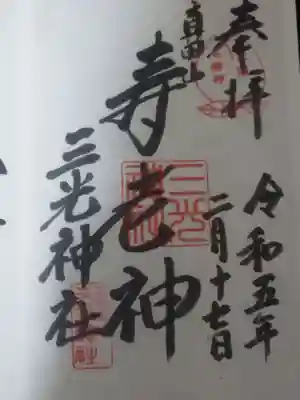 奉拝
令和五年
二月十七日
真田山
寿老神
三光神社
三光神社